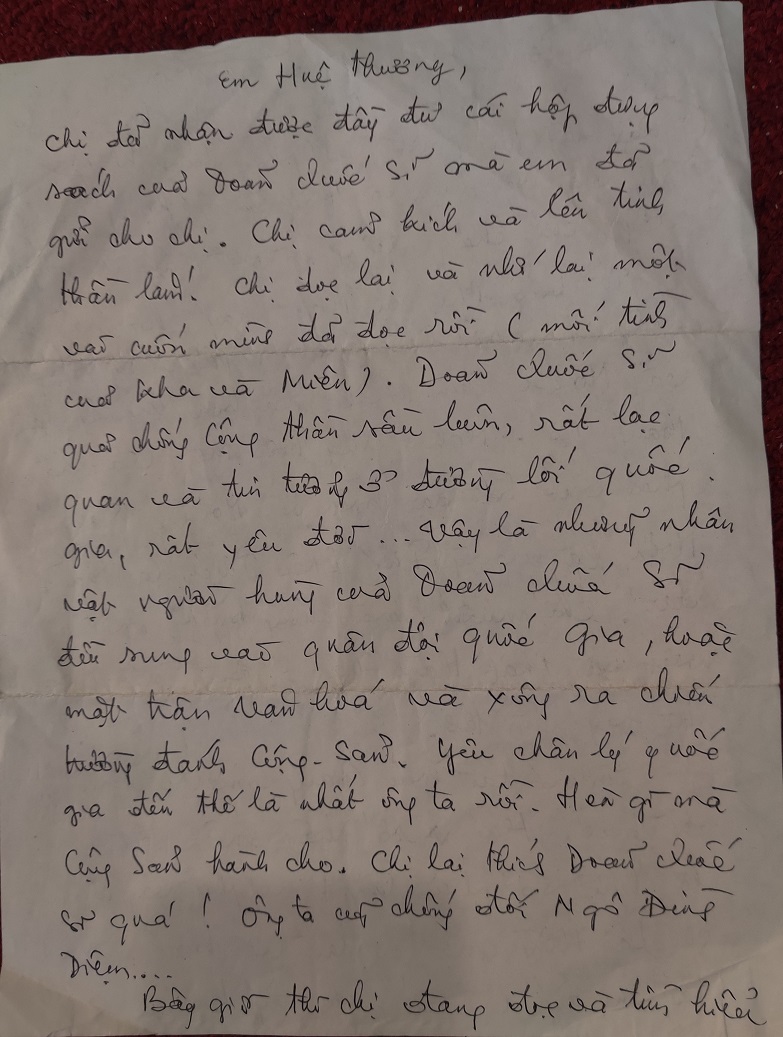 Em Huệ thương,
chị đã nhận được đầy đủ cái hộp đựng
sách của Doãn Quốc Sỹ mà em đã
gửi cho chị. Chị cảm kích và lên tinh
thần lắm! Chị đọc lại và nhớ lại một
vài cuốn mình đã đọc rồi (mối tình
của Kha và Miên). Doãn Quốc Sỹ
quả chống Cộng thần sầu luôn, rất lạc
quan và tin tưởng ở đường lối quốc
gia, rất yêu đời... Vậy là những nhân
vật người hùng của Doãn Quốc Sỹ
đều sung vào quân đội quốc gia, hoặc
mặt trận văn hoá và xông ra chiến
trường đánh Cộng-Sản. Yêu chân lý quốc
gia đến thế là nhất ông ta rồi. Hèn gì mà
Cộng Sản hành cho. Chị lại thích Doãn Quốc
Sỹ quá! Ông ta cũng chống đối Ngô Đình
Diệm....
Bây giờ thì chị đang đọc và tìm hiểu